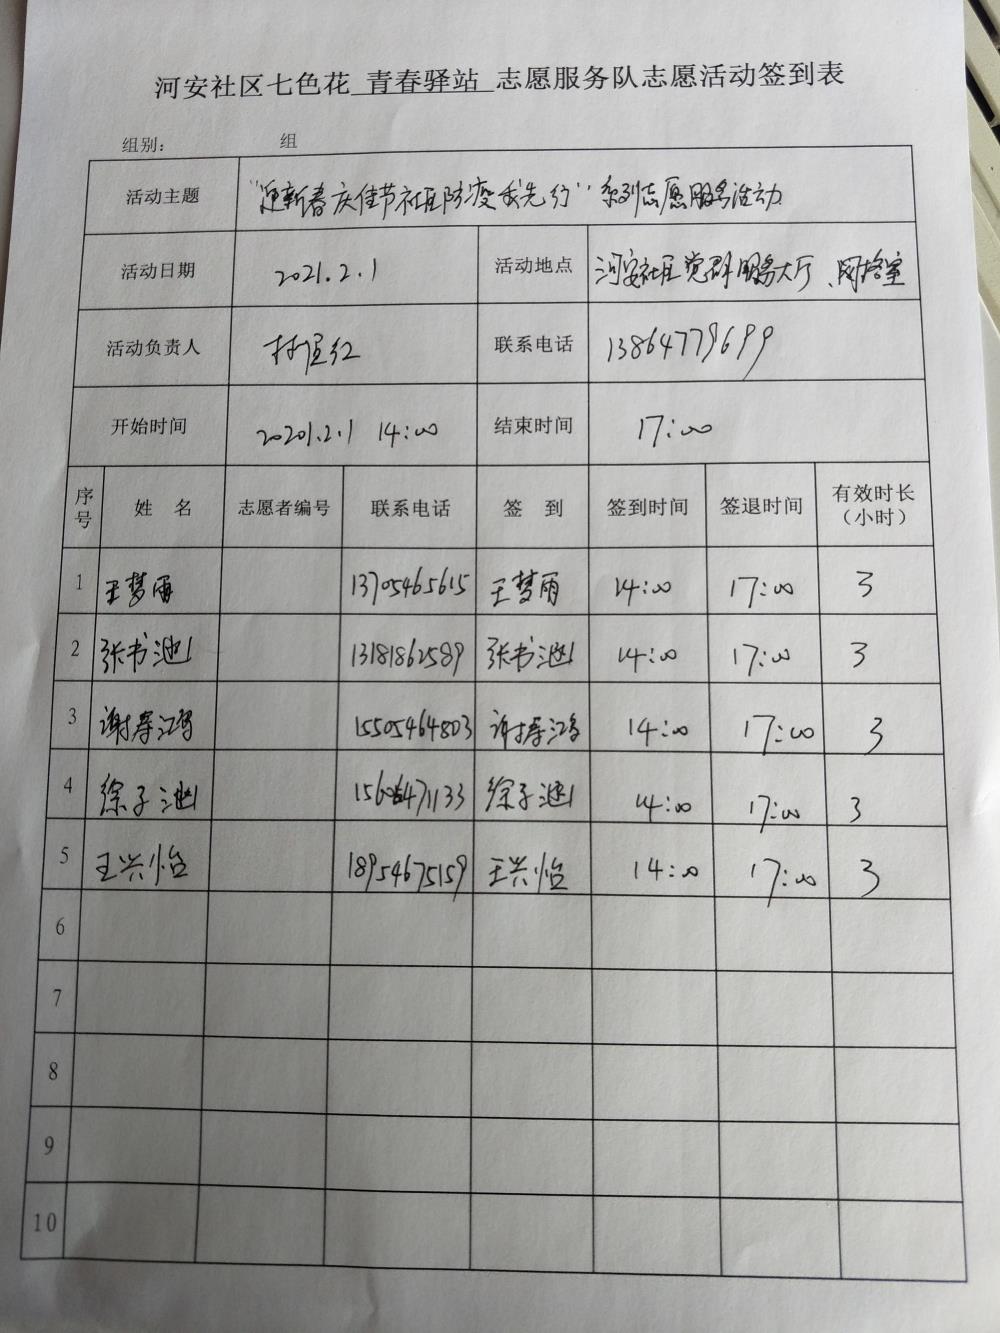 河安社区七色花 青春驿站 志愿服务队志愿活动签到表
组别： 组
活动主题 “迎新春庆佳节社区防疫我先行”系列志愿服务活动
活动日期 2021.2.1 活动地点 河安社区党群服务大厅、网格室
活动负责人 红 联系电话 13864779699
开始时间 2021.2.1 14:00 结束时间 17:00
序号 姓 名 志愿者编号 联系电话 签 到 签到时间 签退时间 有效时长（小时）
1 王梦雨 13705465615 王梦雨 14:00 17:00 3
2 张书 13181862589 张书 14:00 17:00 3
3 谢 15505464803 谢 14:00 17:00 3
4 徐子 徐子 14:00 17:00 3
5 王兴怡 18954675159 王兴怡 14:00 17:00 3
6
7
8
9
10